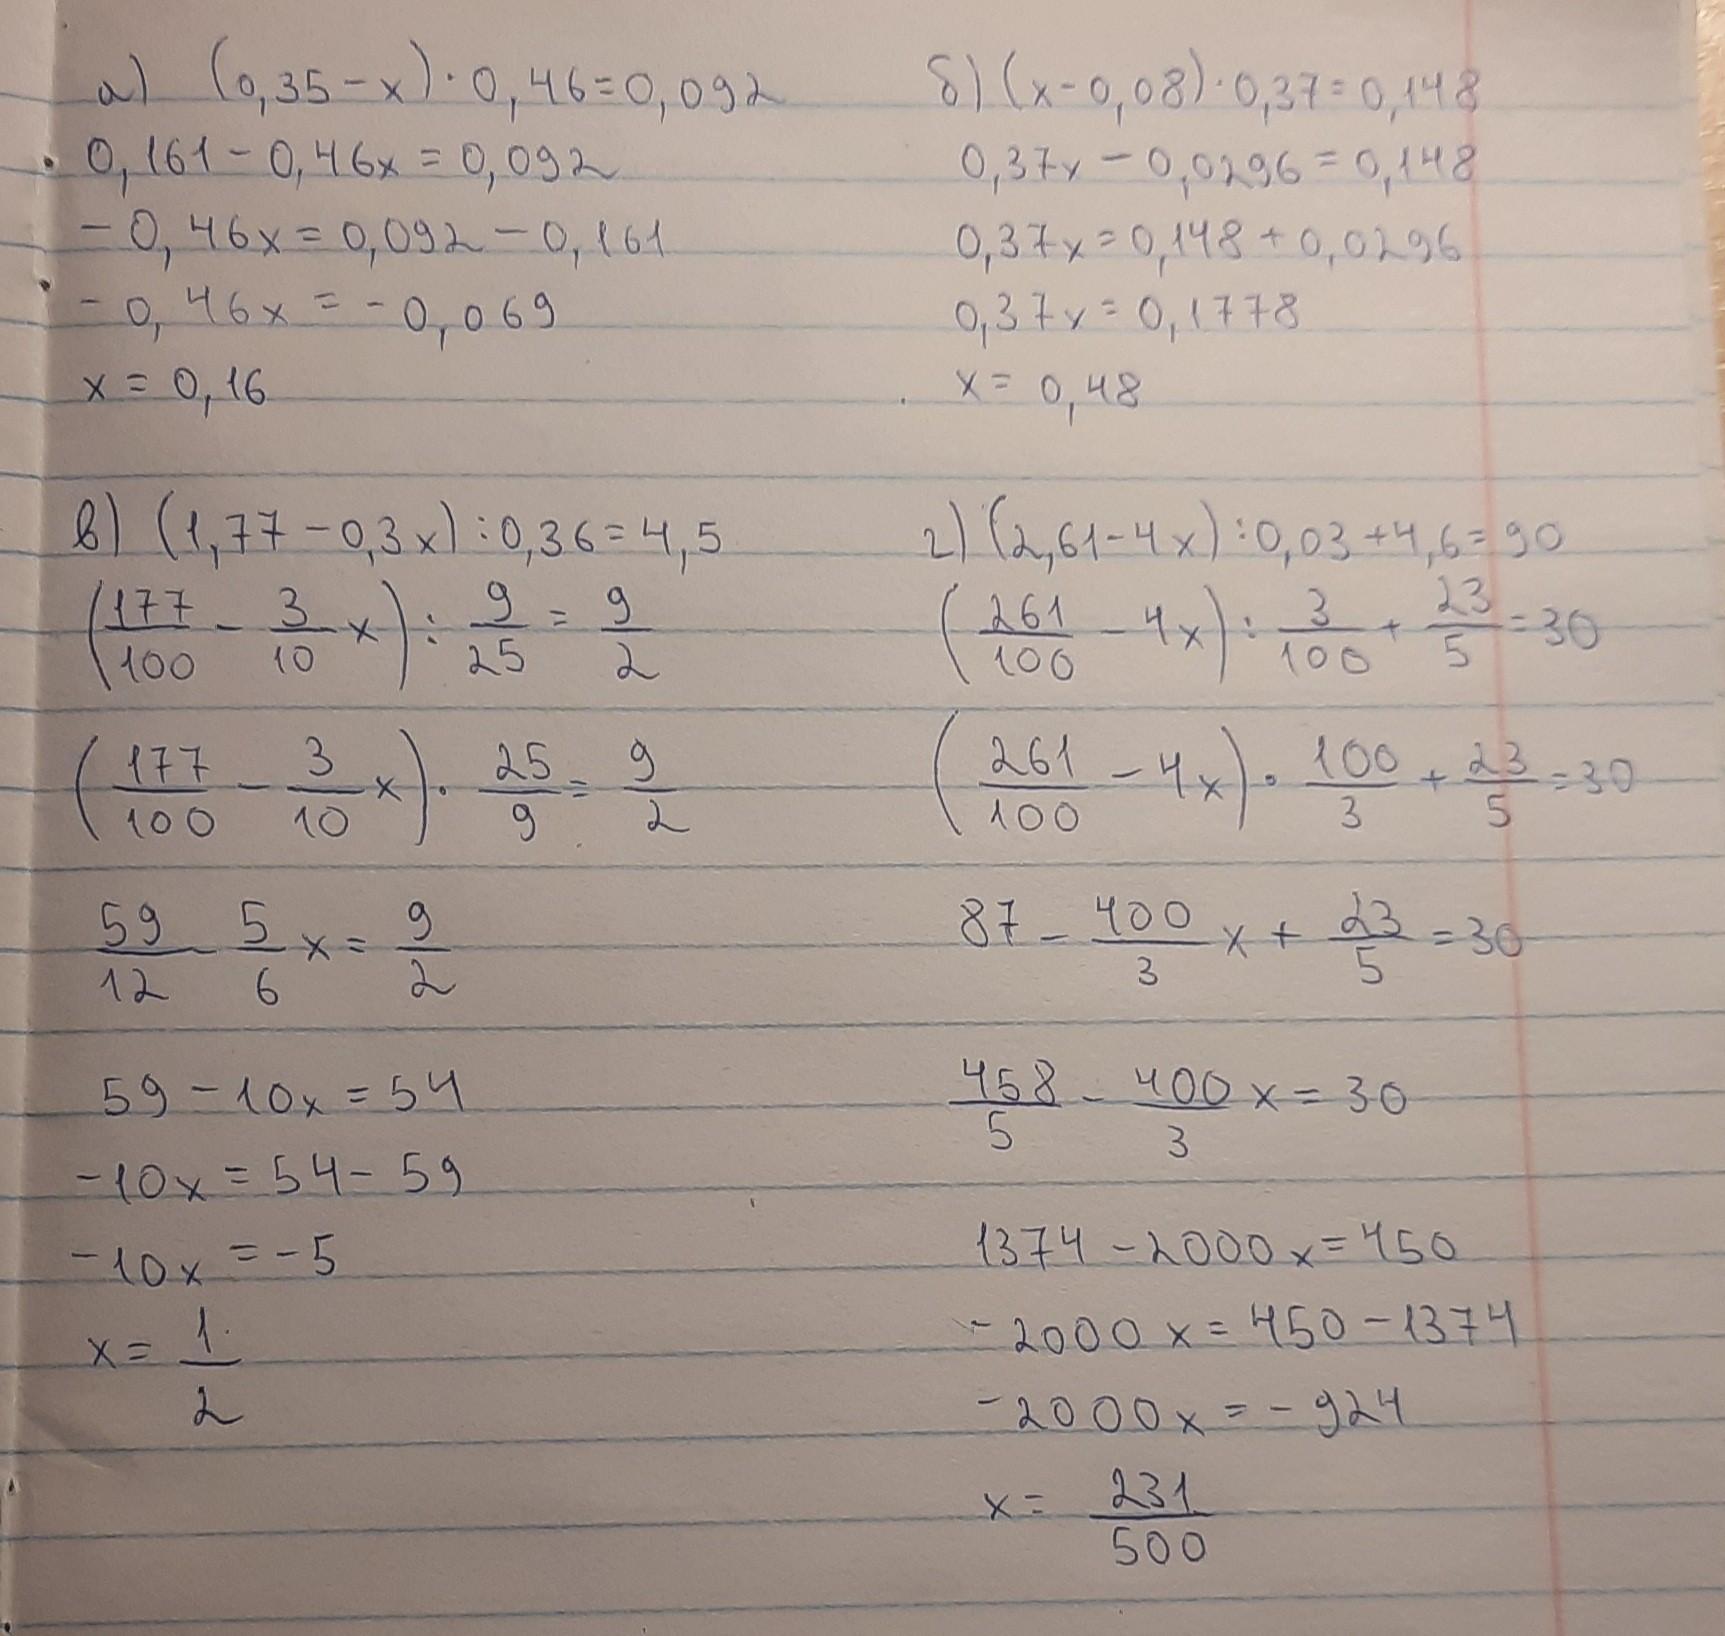 а) (0,35-x)·0,46=0,092
0,161-0,46x=0,092
-0,46x=0,092-0,161
-0,46x=-0,069
x=0,16
б) (x-0,08)·0,37=0,148
0,37x-0,0296=0,148
0,37x=0,148+0,0296
0,37x=0,1778
x=0,48
в) (1,77-0,3x):0,36=4,5
(177/100 - 3/10 x) : 9/25 = 9/2
(177/100 - 3/10 x) · 25/9 = 9/2
59/12 - 5/6 x = 9/2
59-10x=54
-10x=54-59
-10x=-5
x= 1/2
г) (2,61-4x):0,03+4,6=90
(261/100 - 4x) : 3/100 + 23/5 = 30
(261/100 - 4x) · 100/3 + 23/5 = 30
87 - 400/3 x + 23/5 = 30
458/5 - 400/3 x = 30
1374-2000x=450
-2000x=450-1374
-2000x=-924
x= 231/500